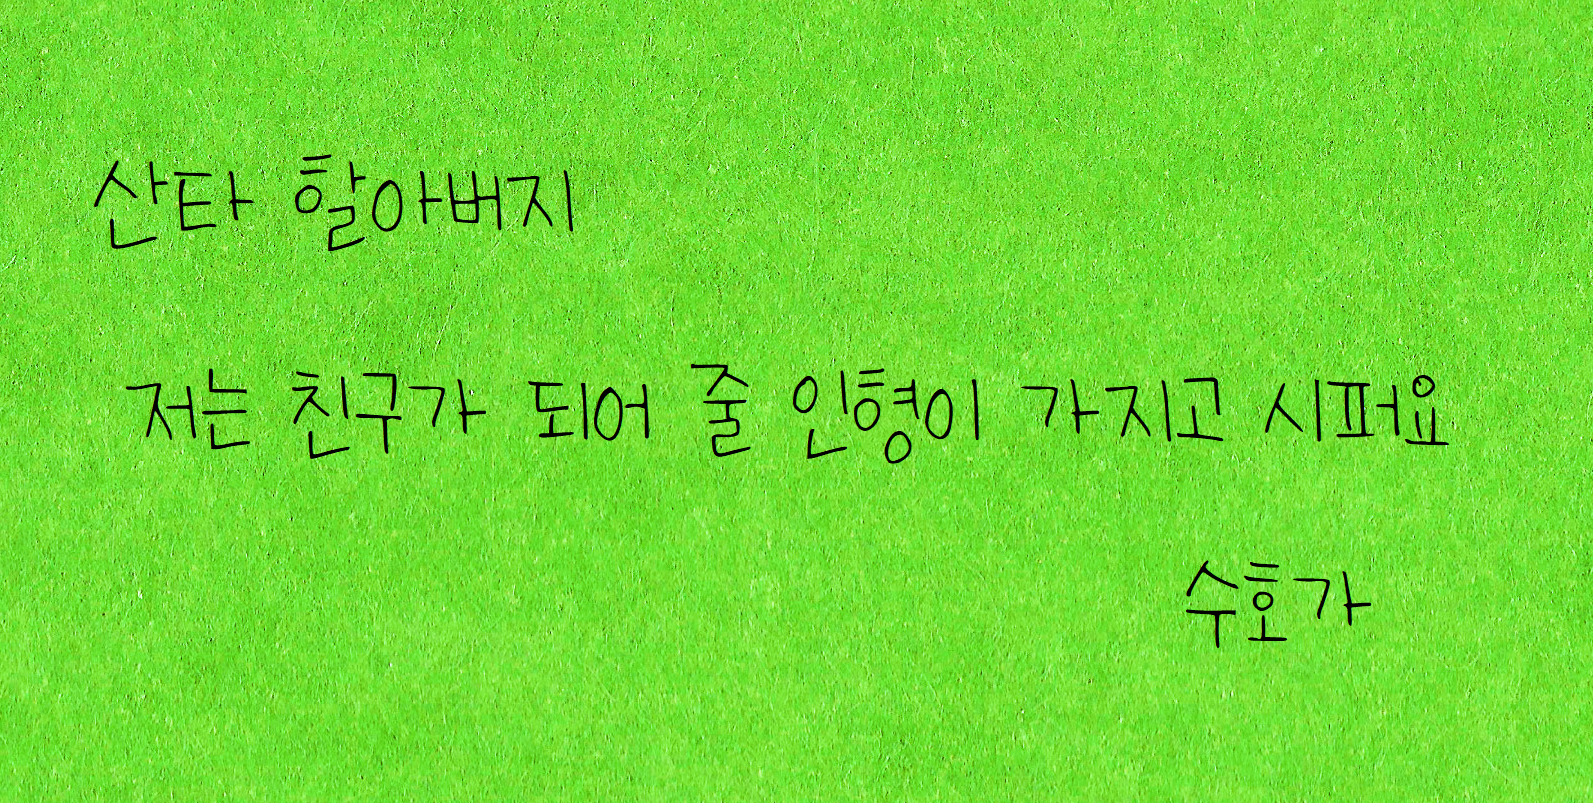 산타 할아버지
저는 친구가 되어 줄 인형이 가지고 시퍼요
수호가